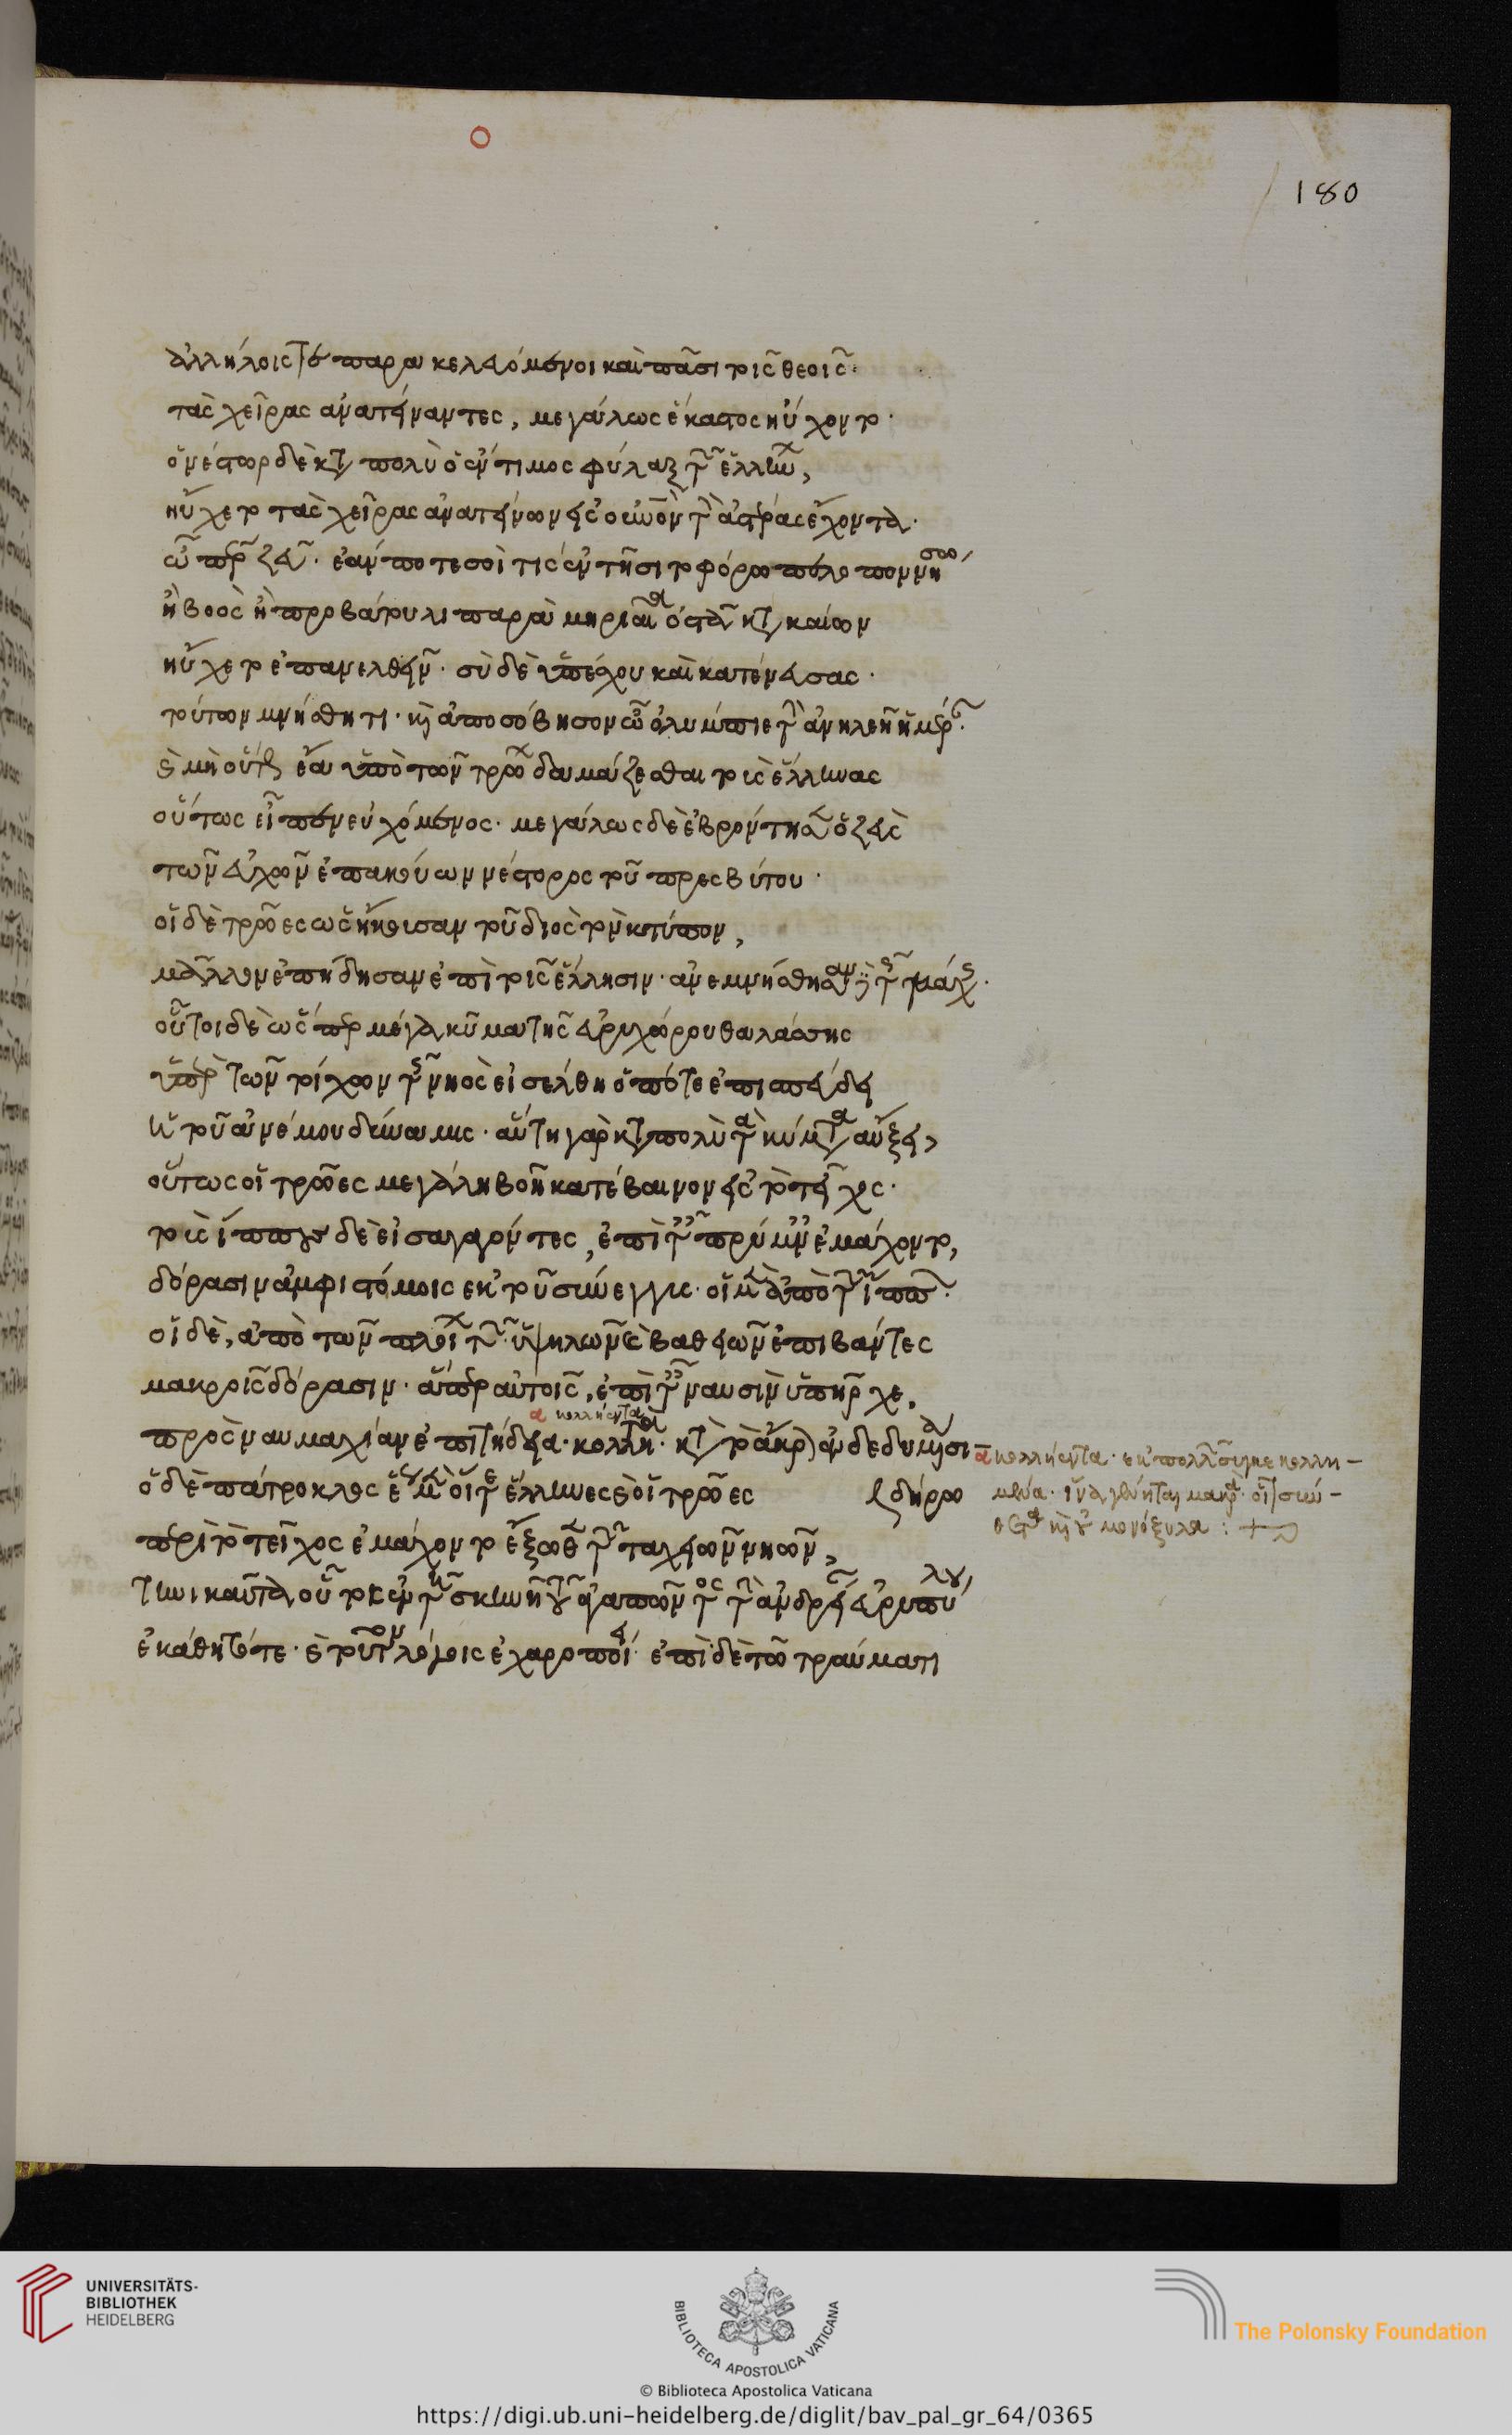 ο
180
ἀλλήλοις τε παρακελευόμενοι καὶ πᾶσι τοῖς θεοῖς·
τὰς χεῖρας ἀνατείναντες, μεγάλως ἕκαστος ηὔχοντο·
ὁ νέστωρ δὲ κατὰ πολὺ ὁ ἔντιμος φύλαξ τῶν ἑλλήνων,
ηὔχετο τὰς χεῖρας ἀνατείνων εἰς οὐρανὸν τὸν ἀστέρας ἔχοντα·
ὦ πάτερ ζεῦ· ἐάν ποτε σοί τις ἐν τῆ σιτοφόρω πελοποννήσω
ἢ βοὸς ἢ προβάτου λιπαρὰ μηριαῖα ὀστᾶ κατακαίων
ηὔχετο ἐπανελθεῖν· σὺ δὲ ὑπέσχου καὶ κατένευσας·
τούτων μνήσθητι· καὶ ἀποσόβησον ὦ ὀλύμπιε τὴν ἀνηλεῆ ἡμέραν·
καὶ μὴ οὕτως ἔα ὑπὸ τῶν τρώων δαμάζεσθαι τοὺς ἕλληνας
οὕτως εἶπεν εὐχόμενος· μεγάλως δὲ ἐβρόντησεν ὁ ζεὺς
τῶν εὐχῶν ἐπακούων νέστορος τοῦ πρεσβύτου·
οἱ δὲ τρῶες ὡς ἤκουσαν τοῦ διὸς τὸν κτύπον,
μᾶλλον ἐπήδησαν ἐπὶ τοῖς ἕλλησιν· ἀνεμνήσθησαν δὲ τῆς μάχης·
οὗτοι δὲ ὥσπερ μέγα κῦμα τῆς εὐρυχώρου θαλάσσης
ὑπὲρ τῶν τοίχων τῆς νηὸς εἰσέλθη ὁπότε ἐπισπεύδει
ἡ τοῦ ἀνέμου δύναμις· αὕτη γὰρ κατὰ πολὺ τὰ κύματα αὔξει,
οὕτως οἱ τρῶες μεγάλη βοῆ κατέβαινον εἰς τὸ τεῖχος·
τοὺς ἵππους δὲ εἰσαγαγόντες, ἐπὶ ταῖς πρύμναις ἐμάχοντο,
δόρασιν ἀμφιστόμοις ἐκ τοῦ σύνεγγυς· οἱ μὲν ἀπὸ τῶν ἵππων·
οἱ δὲ, ἀπὸ τῶν πλοίων τῶν ὑψηλῶν καὶ βαθειῶν ἐπιβάντες
μακροῖς δόρασιν· ἅπερ αὐτοῖς, ἐπὶ ταῖς ναυσὶν ὑπῆρχε,
α κολλήεντα
πρὸς ναυμαχίαν ἐπιτήδεια· κολλητὰ· κατὰ τὸ ἄκρον ἐνδεδυμένα σι
δήρω
ὁ δὲ πάτροκλος ἕως μὲν οἵ τε ἕλληνες καὶ οἱ τρῶες
περὶ τὸ τεῖχος ἐμάχοντο ἔξωθεν τῶν ταχειῶν νηῶν,
τηνικαῦτα οὗτος ἐν τῆ σκηνῆ τοῦ ἀγαπῶντος τὴν ἀνδρείαν εὐρυπύλου
ἐκάθητό τε· καὶ τοῦτον λόγοις ἐχαροποίει· ἐπὶ δὲ τῶ τραύματι
α κολλήεντα· ἐκ πολλῶν συγκεκολλη-
μένα· ἵνα γένηται μακρὰ·
καὶ οὐ μονόξυλα :
UNIVERSITÄTS-
BIBLIOTHEK
HEIDELBERG
BIBLIOTECA APOSTOLICA VATICANA
The Polonsky Foundation
© Biblioteca Apostolica Vaticana
https://digi.ub.uni-heidelberg.de/diglit/bav_pal_gr_64/0365